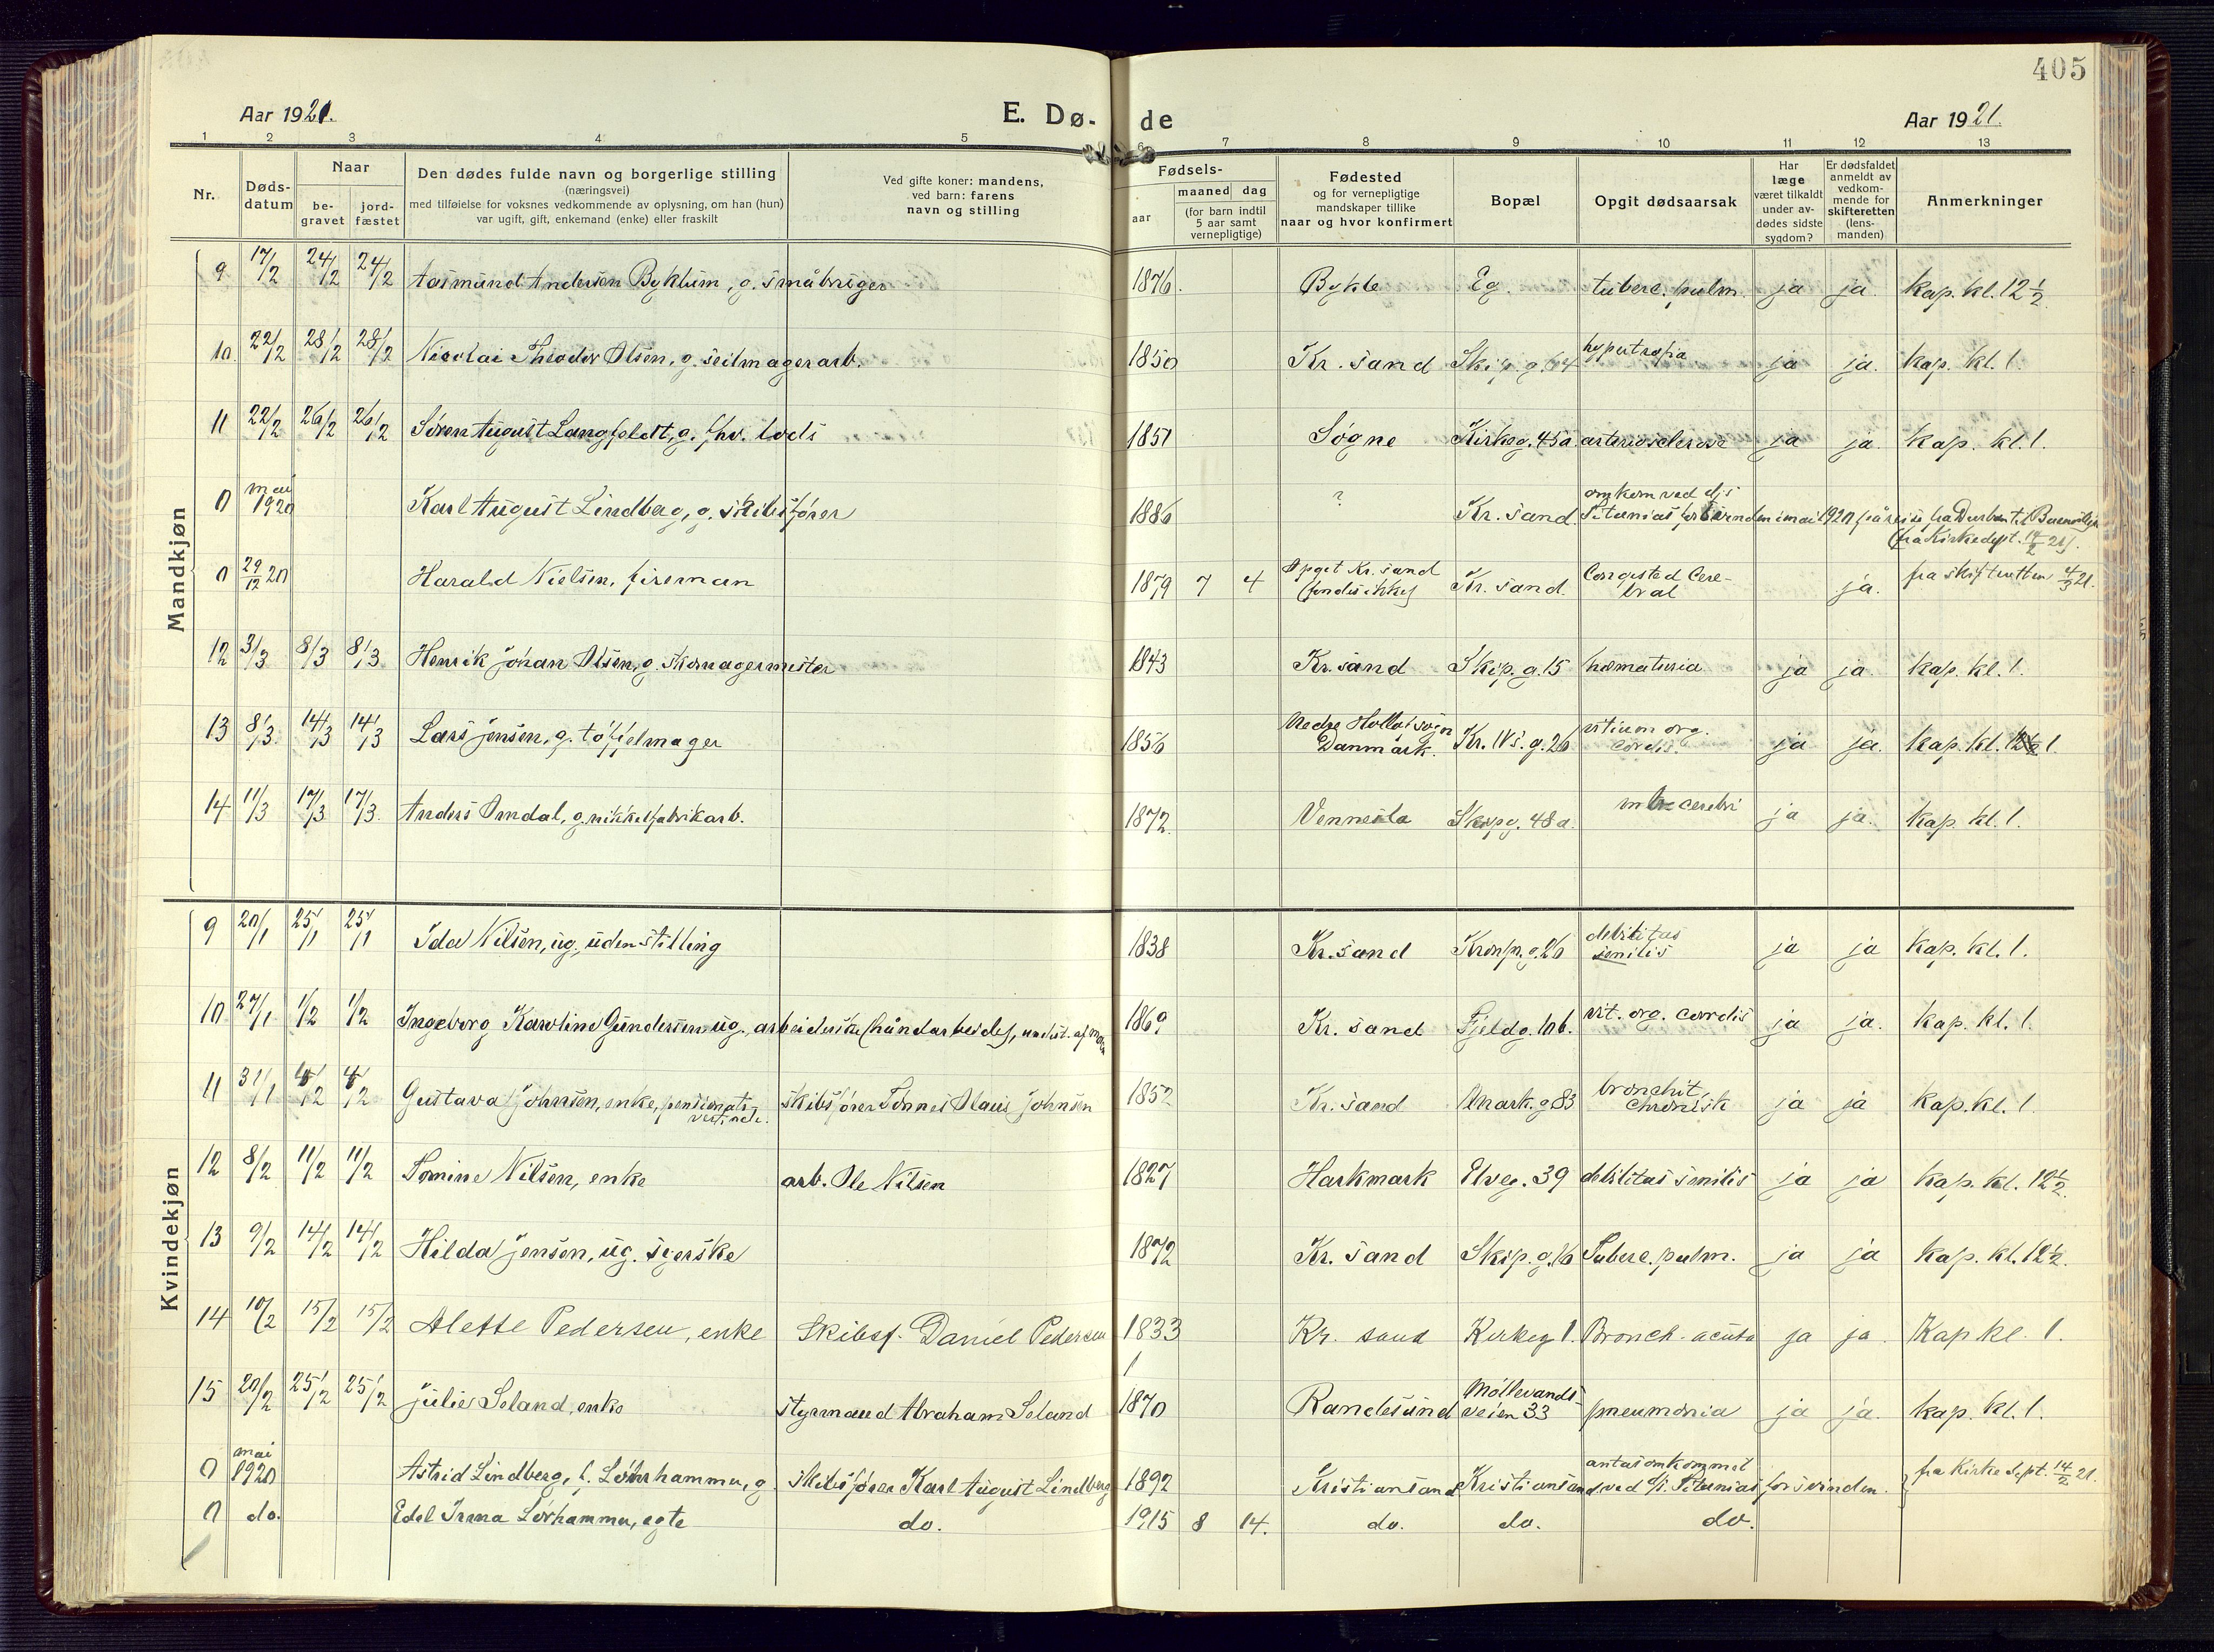 405
Aar 1921.
E. Dø-
de
Aar 1921.
1 2 3 4 5 6 7 8 9 10 11 12 13
Nr.
Døds-
datum
Naar
be-
gravet
jord-
fæstet
Den dødes fulde navn og borgerlige stilling
(næringsvei)
med tilføielse for voksnes vedkommende av oplysning, om han (hun)
var ugift, gift, enkemand (enke) eller fraskilt
Ved gifte koner: mandens,
ved barn: farens
navn og stilling
Fødsels-
aar
maaned dag
(for barn indtil
5 aar samt
vernepligtige)
Fødested
og for vernepligtige
mandskaper tillike
naar og hvor konfirmert
Bopæl
Opgit dødsaarsak
Har
læge
været tilkaldt
under av-
dødes sidste
sygdom?
Er dødsfaldet
anmeldt av
vedkom-
mende for
skifteretten
(lens-
manden)
Anmerkninger
Mandkjøn
9 17/2 24/2 24/2 Aasmund Andersen Byklum, g. småbruger 1876. Bykle Eg. tuberc. pulm. ja ja. kap. kl. 12 1/2
10 22/2 28/2 28/2 Nicolai Theodor Olsen, g. seilmagerarb. 1850 Kr. sand Skip. g. hypertrofia ja ja. kap. kl. 1.
11 22/2 26/2 26/2 Søren August Langfeldt, g. fhv. lods 1851 Søgne Kirkeg. 45a. arteriosclerose ja ja. kap. kl. 1.
0 mai 1920 Karl August Lindberg, g. skibsfører 1886 ? Kr. sand omkom ved d/s
Titanias forsvinden i mai 1920 på reise fra Durban til
(fra Kirkedept. 14/2 21).
0 29/12 20 Harald Nielsen, fireman 1879 7 4 Opget Kr. sand
(findes ikke) Kr. sand. Congested Cere-
bral ja. fra skifteretten 4/3 21.
12 3/3 8/3 8/3 Henrik Johan Olsen, g. skomagermester 1843 Kr. sand Skip. g. 15 hæmaturia ja ja kap. kl. 1.
13 8/3 14/3 14/3 Lars Jensen, g. tøffelmager 1856 Danmark. Kr. IVs. g. 26 vitium org.
cordis. ja ja. kap. kl. 1.
14 11/3 17/3 17/3. Anders Omdal, g. nikkelfabrikarb. 1872. Vennesla Skipg. 48a. cerebri ja ja. kap. kl. 1.
Kvindekjøn
9 20/1 25/1 25/1 Ida Nilsen, ug., uden stilling 1838 Kr. sand Kronp. g. 26 debilitas
senilis ja ja kap. kl. 1.
10 27/1 1/2 1/2 Ingeborg Karoline Gundersen ug., arbeiderske (håndarbeide), underst. af 1869 Kr. sand Fjeldg. 10b. vit. org. cordis ja ja. kap. kl. 1.
11 31/1 /2 /2 Gustava Johnsen, enke, pensionats-
vertinde. skibsfører Tønnes Olaus Johnsen 1852 Kr. sand Mark. g 83 bronchit.
chronisk ja ja kap. kl. 1
12 8/2 11/2 11/2 Tomine Nilsen, enke arb. Ole Nilsen 1827 Harkmark Elveg. 39 debilitas senilis ja ja kap. kl. 12 1/2.
13 9/2 14/2 14/2 Hilda Jensen, ug. syerske 1872 Kr. sand Skip. g. 16 Tuberc. pulm. ja ja kap. kl. 12 1/2.
14 10/2 15/2 15/2 Alette Pedersen, enke Skibsf. Daniel Pedersen 1833 Kr. sand Kirkeg 1. Bronch. acuta ja ja Kap kl. 1.
15 20/2 25/2 25/2 Julie Seland, enke styrmand Abraham Seland 1870 Randesund Møllevands-
veien 33 pneumonia ja ja. kap. kl. 1.
0 mai 1920 Astrid Lindberg, f. Lørhammer, g skibsfører Karl August Lindberg 1892 Kristiansand Kristiansand antas omkommet
ved d/s. Titanias forsvinden. fra Kirke dept. 14/2 21.
0 do. Edel Lørhammer, egte do. 1915 8 14. do. do. do.